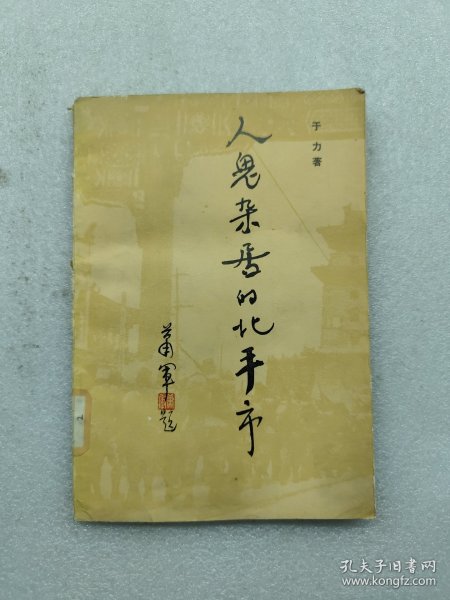 于力著
人鬼杂居的北平市
萧军题
2
孔夫子旧书网
www.kongfz.com